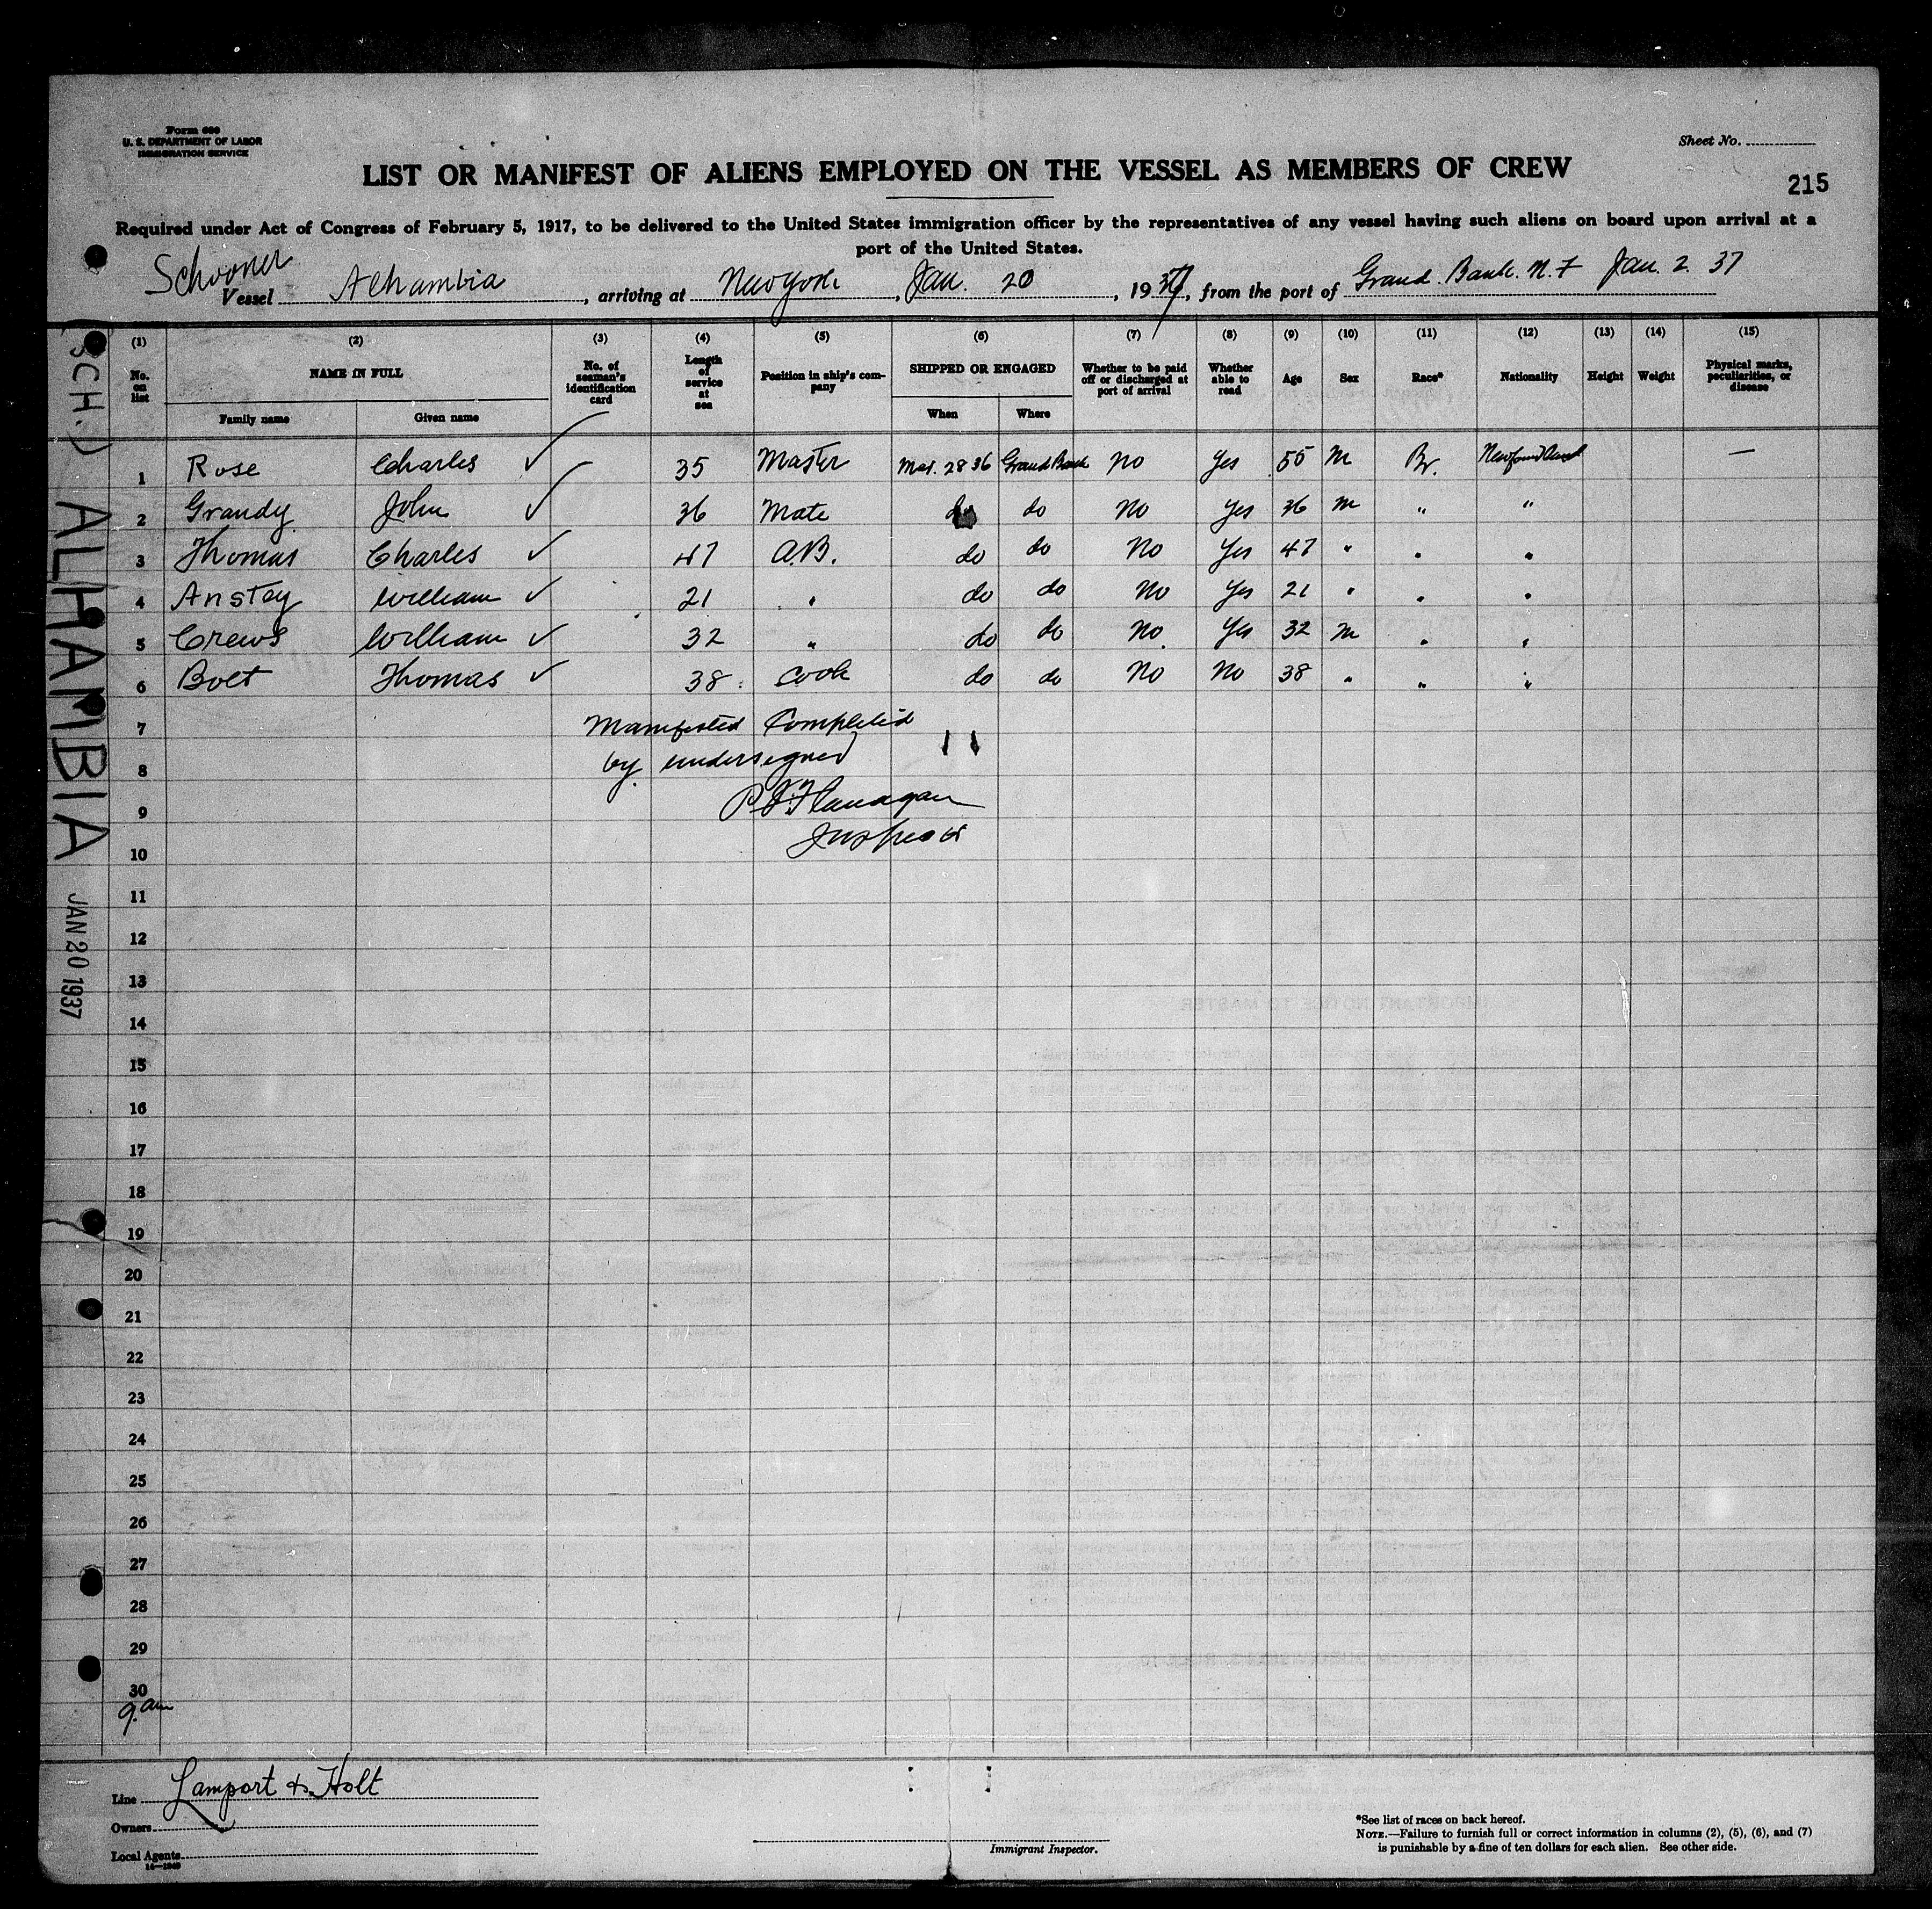 Form 680
U. S. DEPARTMENT OF LABOR
IMMIGRATION SERVICE
Sheet No.
LIST OR MANIFEST OF ALIENS EMPLOYED ON THE VESSEL AS MEMBERS OF CREW
215
Required under Act of Congress of February 5, 1917, to be delivered to the United States immigration officer by the representatives of any vessel having such aliens on board upon arrival at a
port of the United States.
Schooner
Vessel Alhambra, arriving at New York, Jan. 20, 1937, from the port of Grand Bank. N. F Jan. 2. 37
(1) (2) (3) (4) (5) (6) (7) (8) (9) (10) (11) (12) (13) (14) (15)
No. on list NAME IN FULL No. of seaman's identification card Length of service at sea Position in ship's company SHIPPED OR ENGAGED Whether to be paid off or discharged at port of arrival Whether able to read Age Sex Race* Nationality Height Weight Physical marks, peculiarities, or disease
Family name Given name When Where
1 Rose Charles 35 Master Mar. 28 36 Grand Bank No Yes 55 M Br. Newfoundland —
2 Grandy John 36 Mate do do No Yes 36 M " "
3 Thomas Charles 47 A.B. do do No Yes 47 " " "
4 Anstey William 21 " do do No Yes 21 " " "
5 Crews William 32 " do do No Yes 32 M " "
6 Bolt Thomas 38 Cook do do No No 38 " " "
7 Manifested Completed
8 by undersigned
9 P. J. Flanagan
10 Inspector
11
12
13
14
15
16
17
18
19
20
21
22
23
24
25
26
27
28
29
30
9. am
(SCH.) ALHAMBIA JAN 20 1937
Line Lamport & Holt
Owners
Local Agents
14—1240
Immigrant Inspector.
*See list of races on back hereof.
NOTE.—Failure to furnish full or correct information in columns (2), (5), (6), and (7)
is punishable by a fine of ten dollars for each alien. See other side.